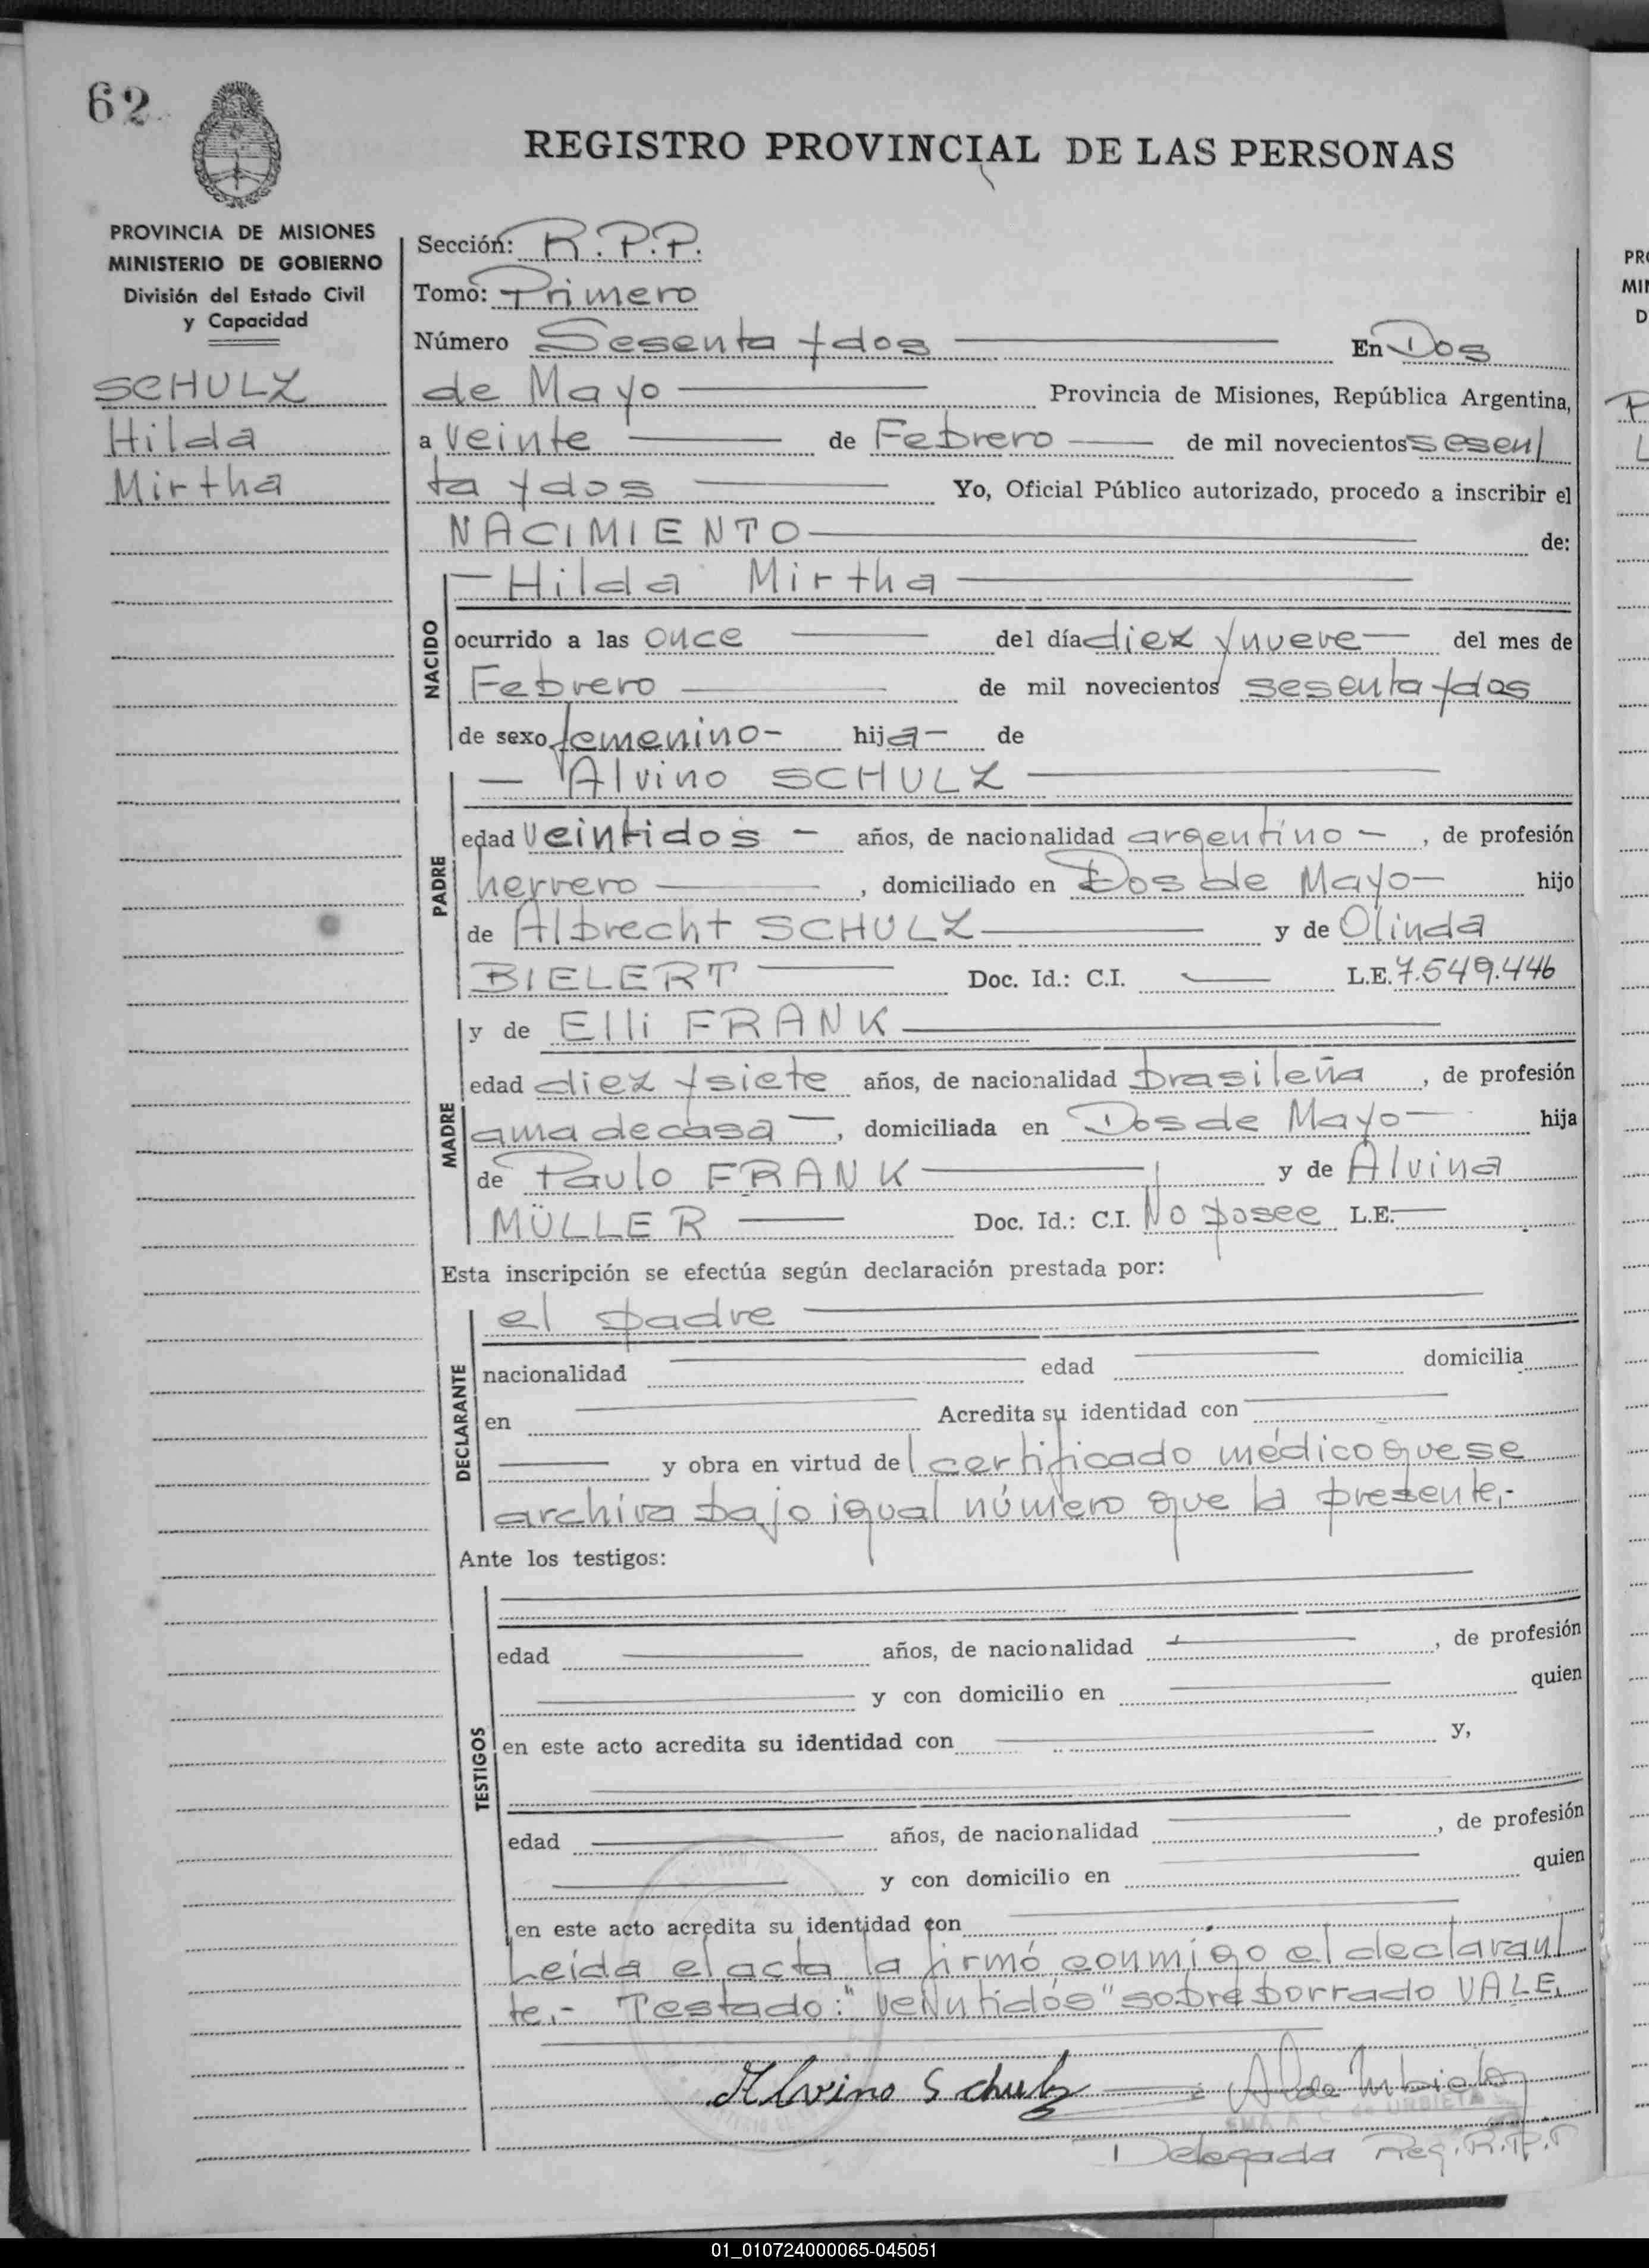 62
REGISTRO PROVINCIAL DE LAS PERSONAS
PROVINCIA DE MISIONES
MINISTERIO DE GOBIERNO
División del Estado Civil
y Capacidad
SCHULZ
Hilda
Mirtha
Sección: R.P.P.
Tomo: Primero
Número Sesenta y dos En Dos
de Mayo Provincia de Misiones, República Argentina,
a veinte de Febrero de mil novecientos sesen
ta y dos Yo, Oficial Público autorizado, procedo a inscribir el
NACIMIENTO de:
NACIDO
Hilda Mirtha
ocurrido a las once del día diez y nueve del mes de
Febrero de mil novecientos sesenta y dos
de sexo femenino- hija- de
PADRE
Alvino SCHULZ
edad veintidos - años, de nacionalidad argentino -, de profesión
herrero, domiciliado en Dos de Mayo- hijo
de Albrecht SCHULZ y de Olinda
BIELERT Doc. Id.: C.I. L.E. 7.549.446
MADRE
y de Elli FRANK
edad diez y siete años, de nacionalidad brasileña, de profesión
ama de casa -, domiciliada en Dos de Mayo- hija
de Paulo FRANK y de Alvina
MÜLLER Doc. Id.: C.I. No posee L.E.
Esta inscripción se efectúa según declaración prestada por:
DECLARANTE
el padre
nacionalidad edad domicilia
en Acredita su identidad con
y obra en virtud del certificado médico que se
archiva bajo igual número que la presente.-
Ante los testigos:
TESTIGOS
edad años, de nacionalidad , de profesión
y con domicilio en quien
en este acto acredita su identidad con y,
edad años, de nacionalidad , de profesión
y con domicilio en quien
en este acto acredita su identidad con
Leída el acta la firmó conmigo el declaran
te.- Testado: "veintidos" sobre borrado VALE.
Alvino Schulz
de URBIETA
Delegada Reg. R.P.P.
PR
MI
D
01_010724000065-045051